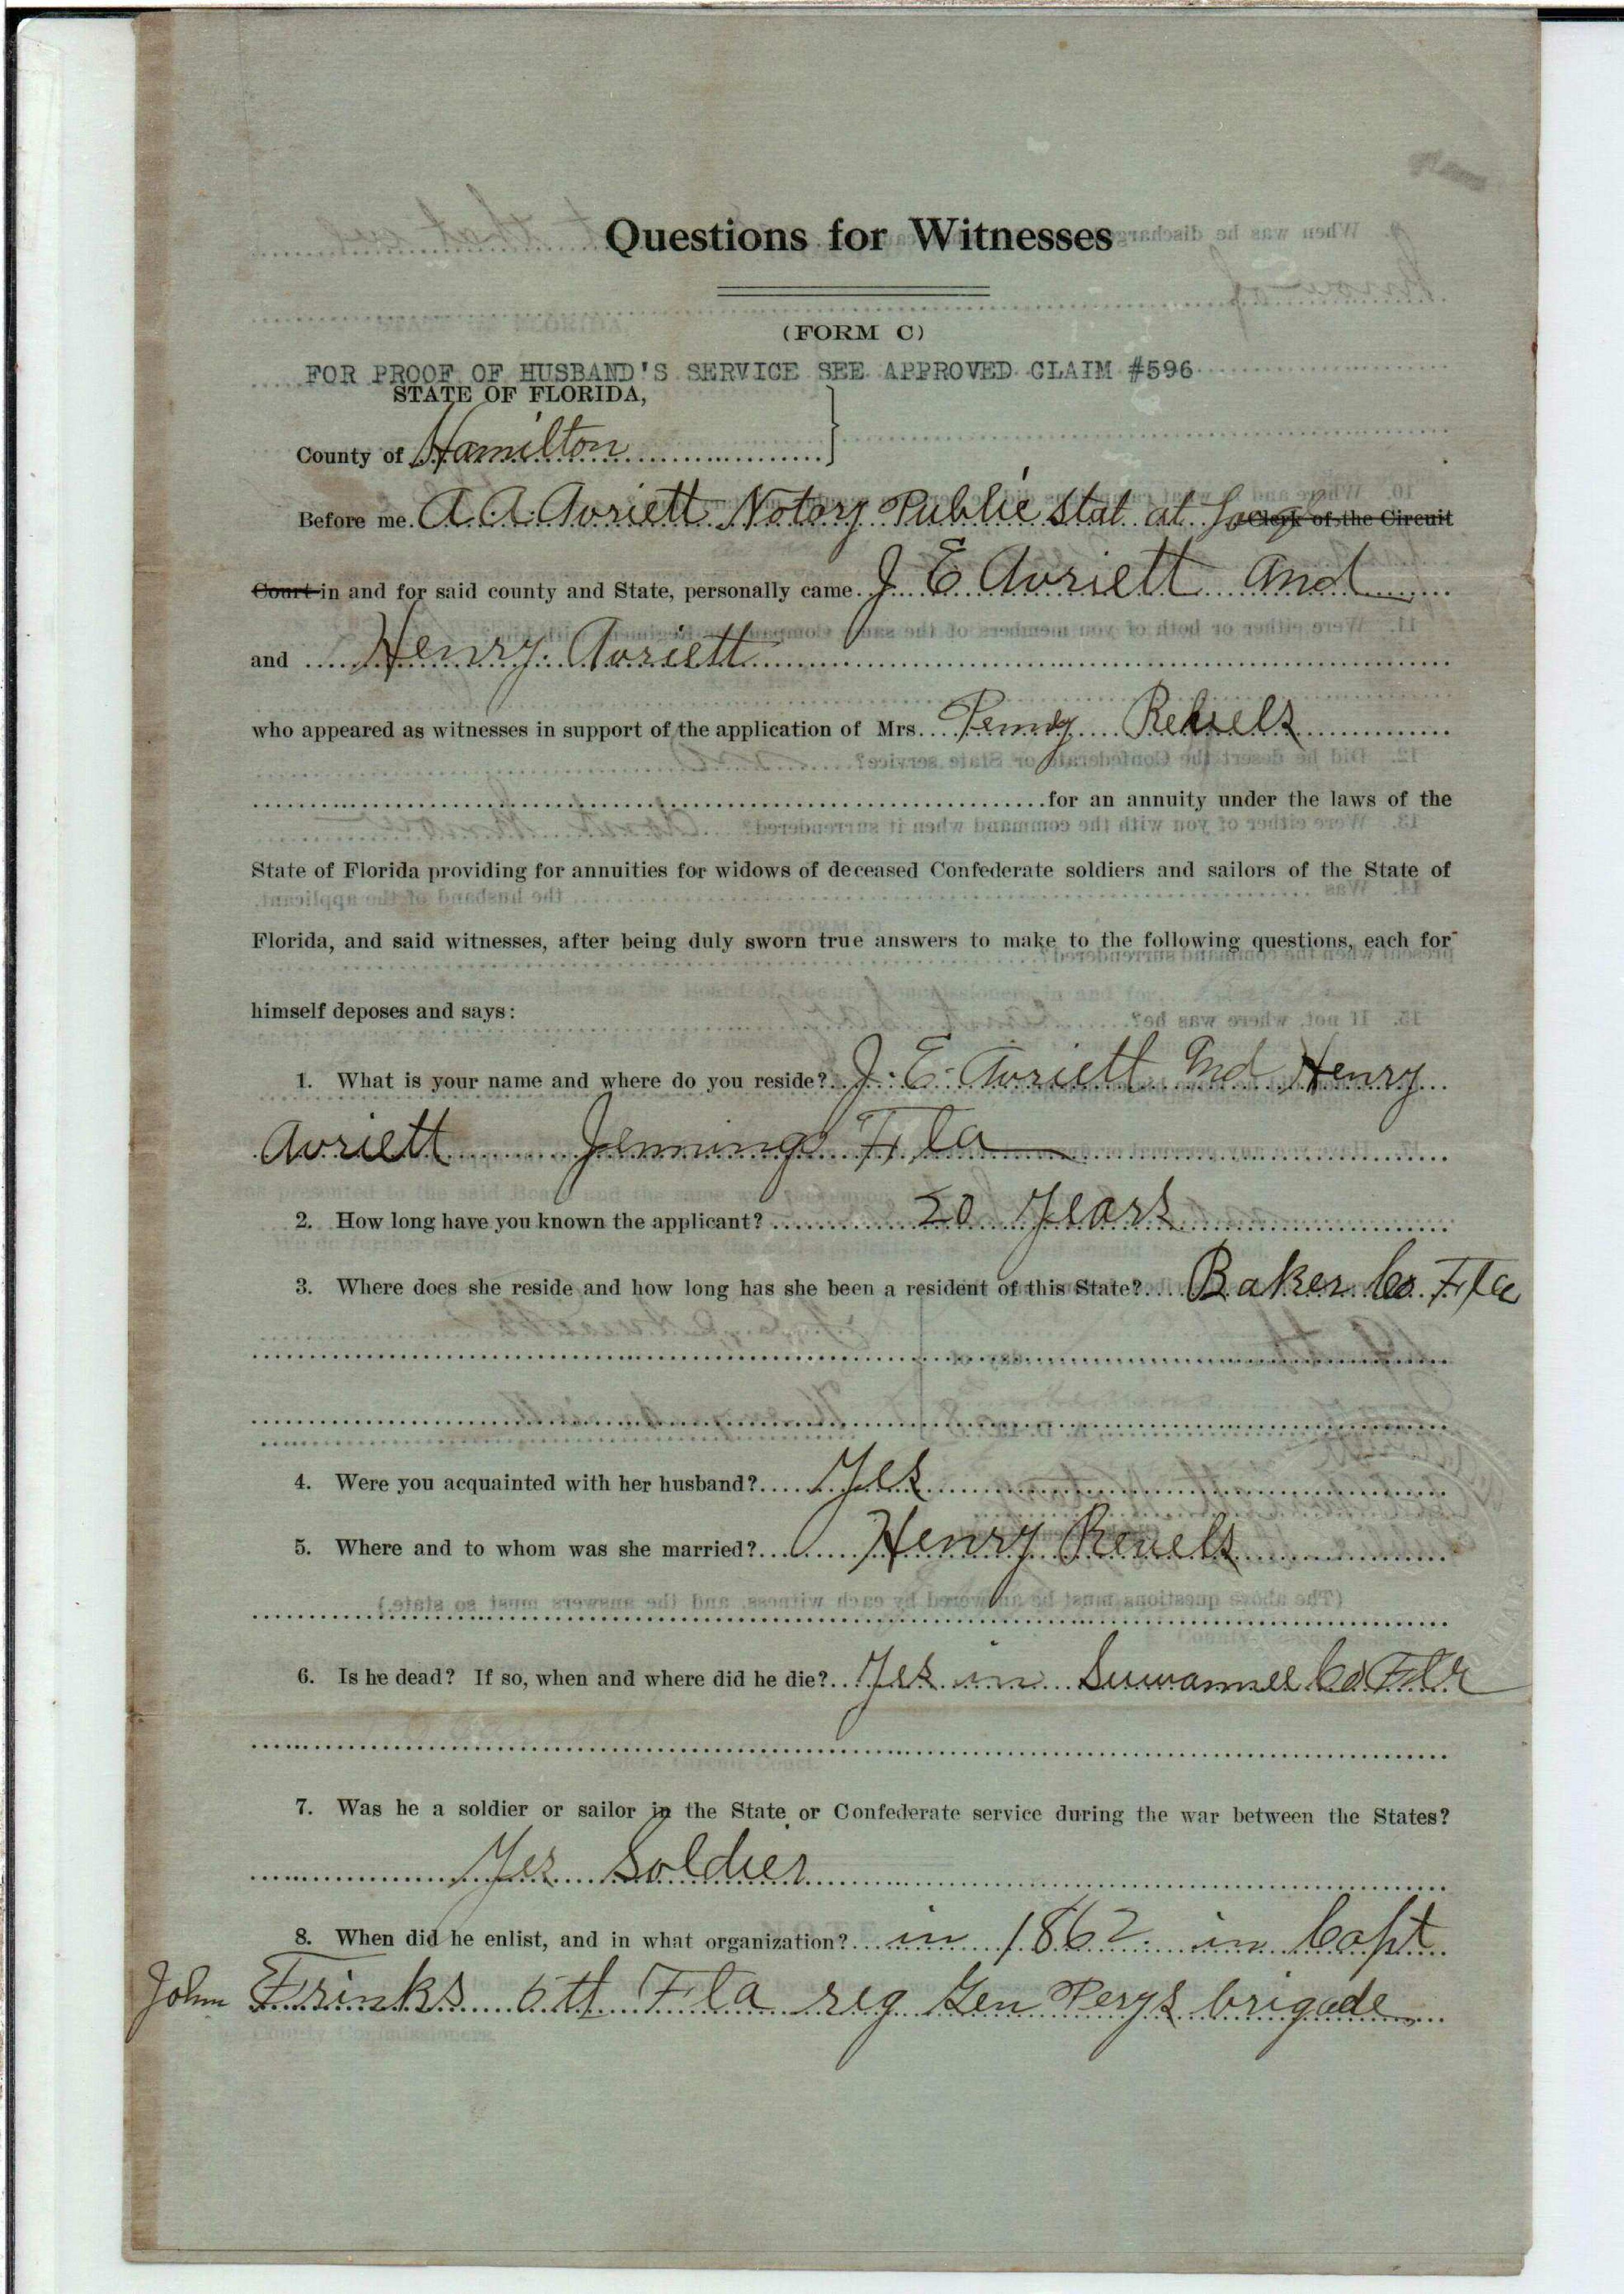 Questions for Witnesses
(FORM C)
FOR PROOF OF HUSBAND'S SERVICE SEE APPROVED CLAIM #596
STATE OF FLORIDA,
County of Hamilton
Before me A. A. Avriett Notary Public Stat at Clerk of the Circuit
Court in and for said county and State, personally came J E Avriett and
and Henry Avriett
who appeared as witnesses in support of the application of Mrs. Revels
for an annuity under the laws of the
State of Florida providing for annuities for widows of deceased Confederate soldiers and sailors of the State of
Florida, and said witnesses, after being duly sworn true answers to make to the following questions, each for
himself deposes and says:
1. What is your name and where do you reside? J. E. Avriett and Henry
Avriett Jennings Fla
2. How long have you known the applicant? 20 Years
3. Where does she reside and how long has she been a resident of this State? Baker Co. Fla
4. Were you acquainted with her husband? Yes
5. Where and to whom was she married? Henry Revels
6. Is he dead? If so, when and where did he die? Yes in Suwannee Co Fla
7. Was he a soldier or sailor in the State or Confederate service during the war between the States?
Yes Soldier
8. When did he enlist, and in what organization? in 1862 in Capt
John Frinks 5th Fla reg Gen Perys brigade